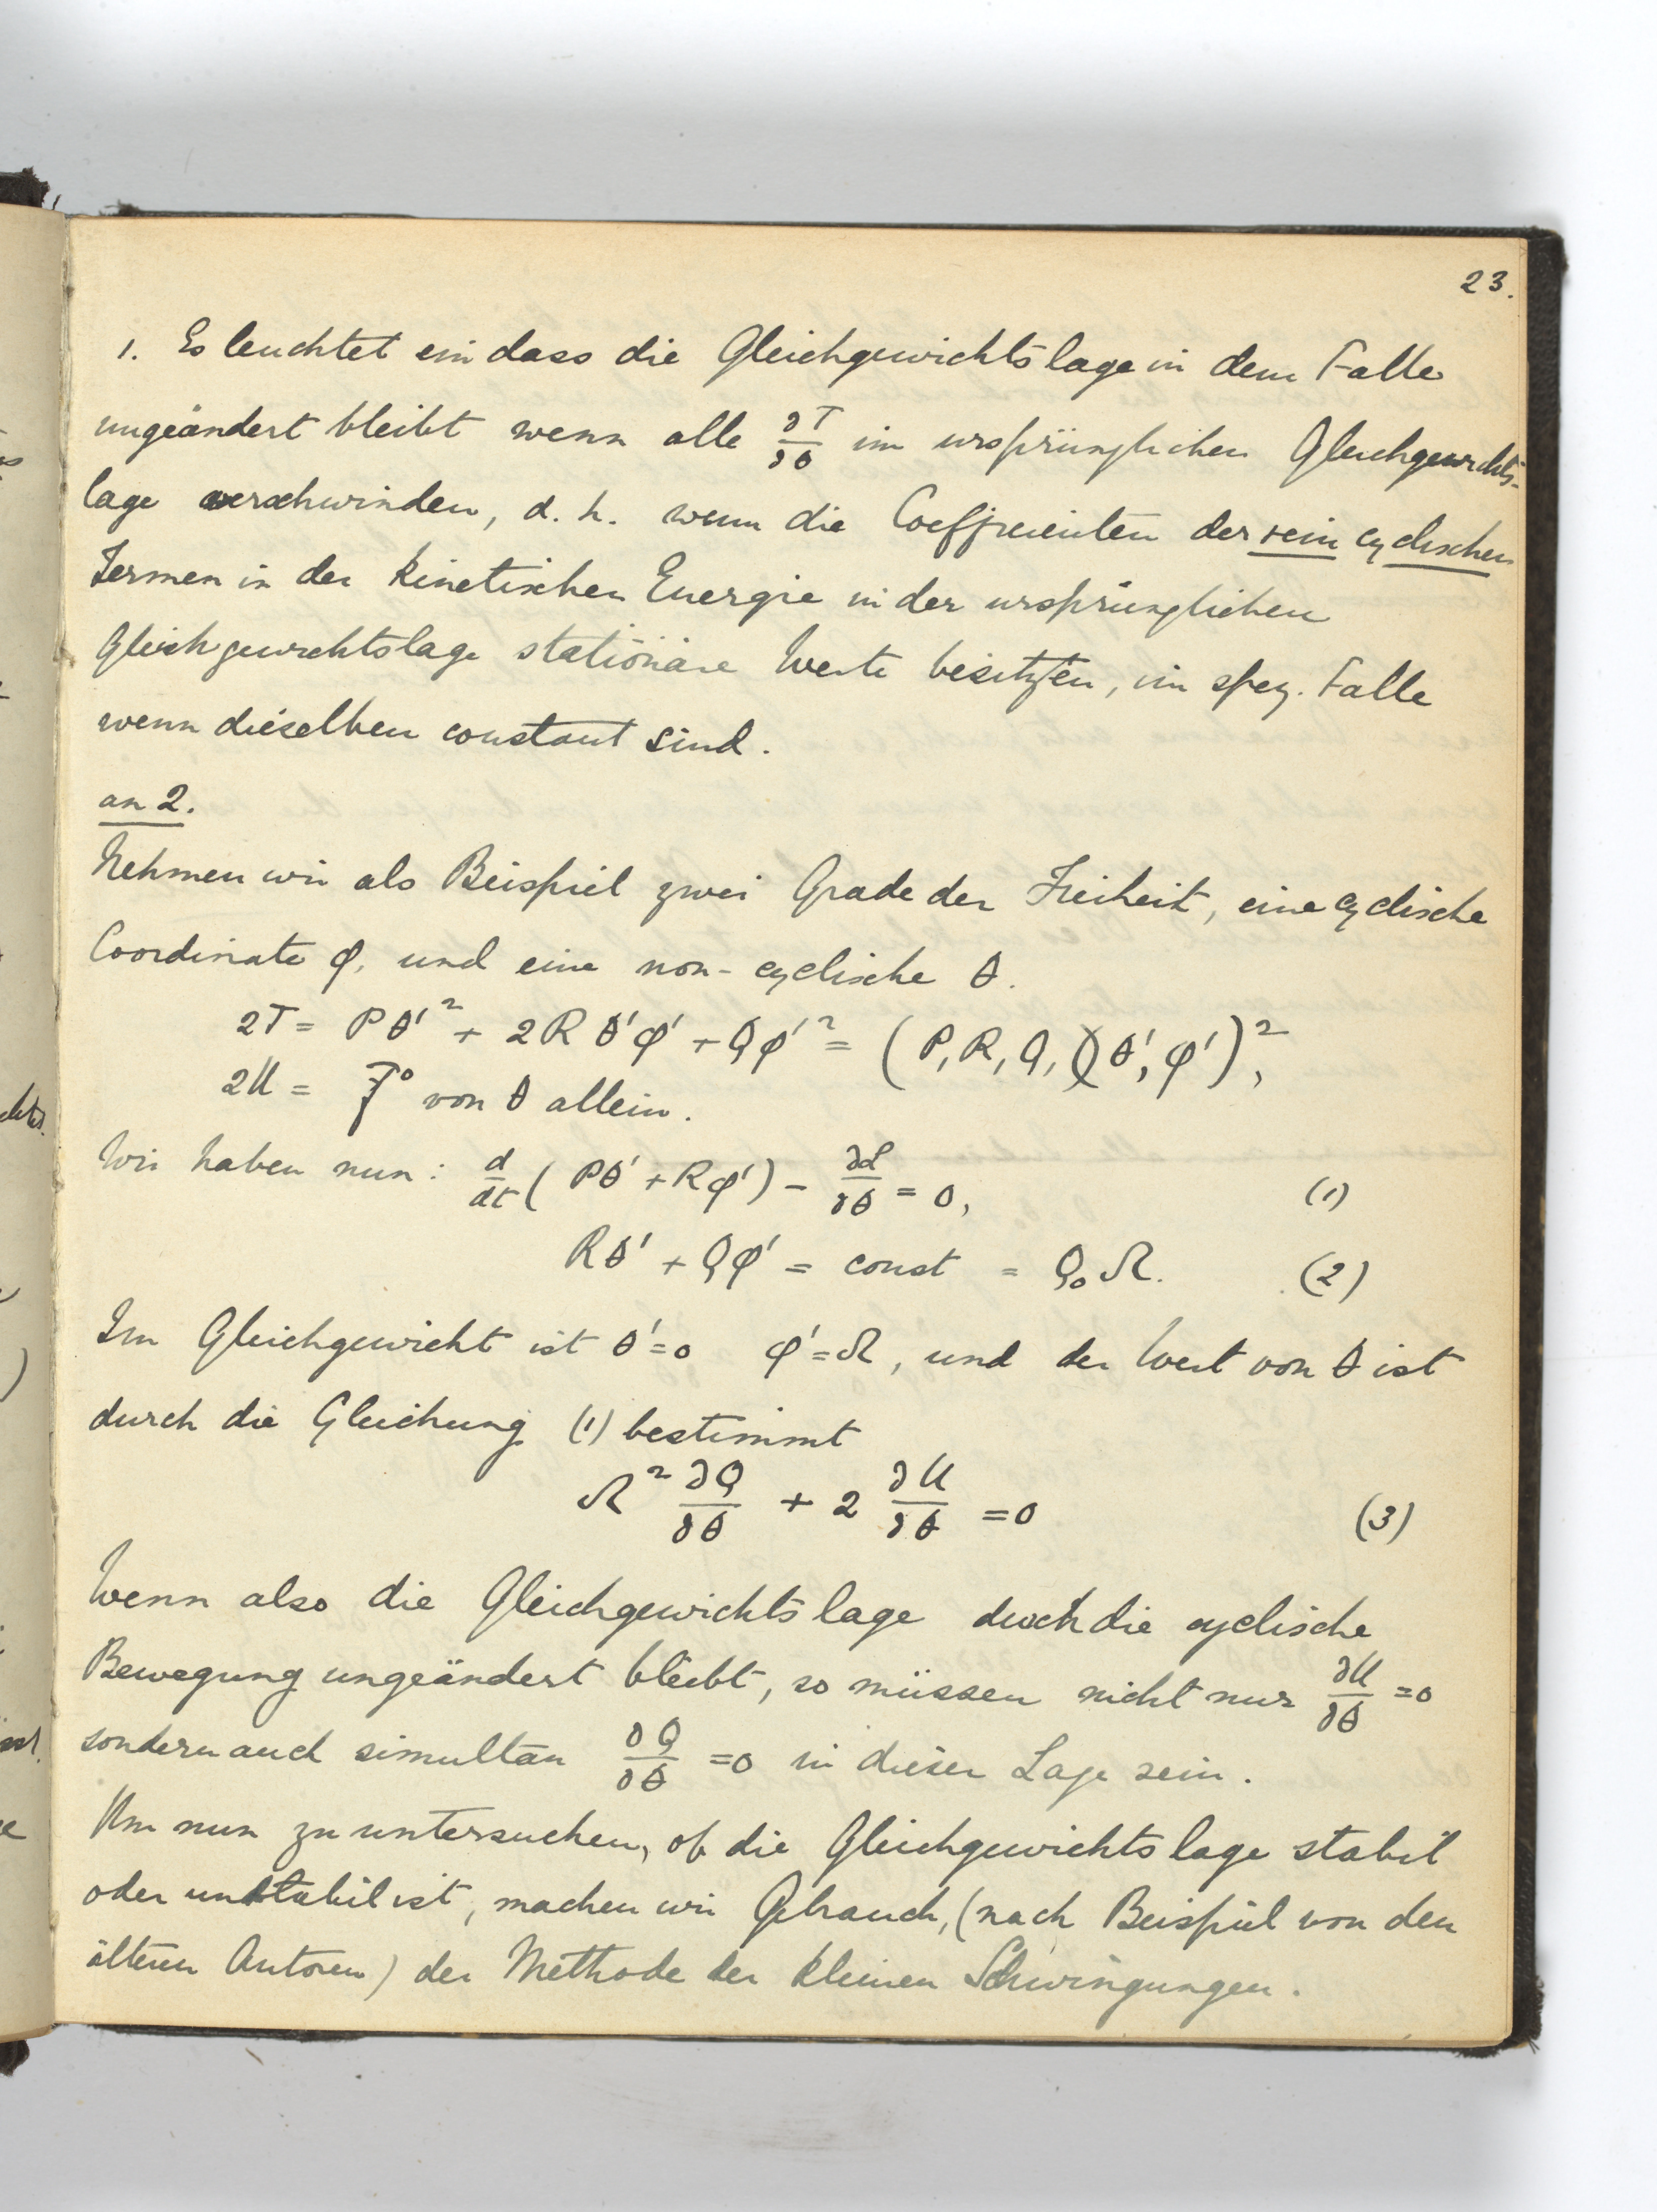 23.
1. Es leuchtet ein dass die Gleichgewichtslage in dem Falle
ungeändert bleibt wenn alle ∂T/∂θ im ursprünglichen Gleichgewichts-
lage verschwinden, d. h. wenn die Coefficienten der rein cyclischen
Termen in der kinetischen Energie in der ursprünglichen
Gleichgewichtslage stationäre Werte besitzen, im spez. Falle
wenn dieselben constant sind.
an 2.
Nehmen wir als Beispiel zwei Grade der Freiheit, eine cyclische
Coordinate φ, und eine non-cyclische θ.
2T = Pθ'² + 2Rθ'φ' + Qφ'² = (P, R, Q,)(θ', φ')²,
2U = F° von θ allein.
Wir haben nun: d/dt (Pθ' + Rφ') − ∂L/∂θ = 0, (1)
Rθ' + Qφ' = const = Q₀Ω. (2)
Im Gleichgewicht ist θ'=0 φ'=Ω, und der Wert von θ ist
durch die Gleichung (1) bestimmt
Ω² ∂Q/∂θ + 2 ∂U/∂θ = 0 (3)
Wenn also die Gleichgewichtslage durch die cyclische
Bewegung ungeändert bleibt, so müssen nicht nur ∂U/∂θ =0
sondern auch simultan ∂Q/∂θ =0 in dieser Lage sein.
Um nun zu untersuchen, ob die Gleichgewichtslage stabil
oder unstabil ist, machen wir Gebrauch, (nach Beispiel von den
älteren Autoren) der Methode der kleinen Schwingungen.